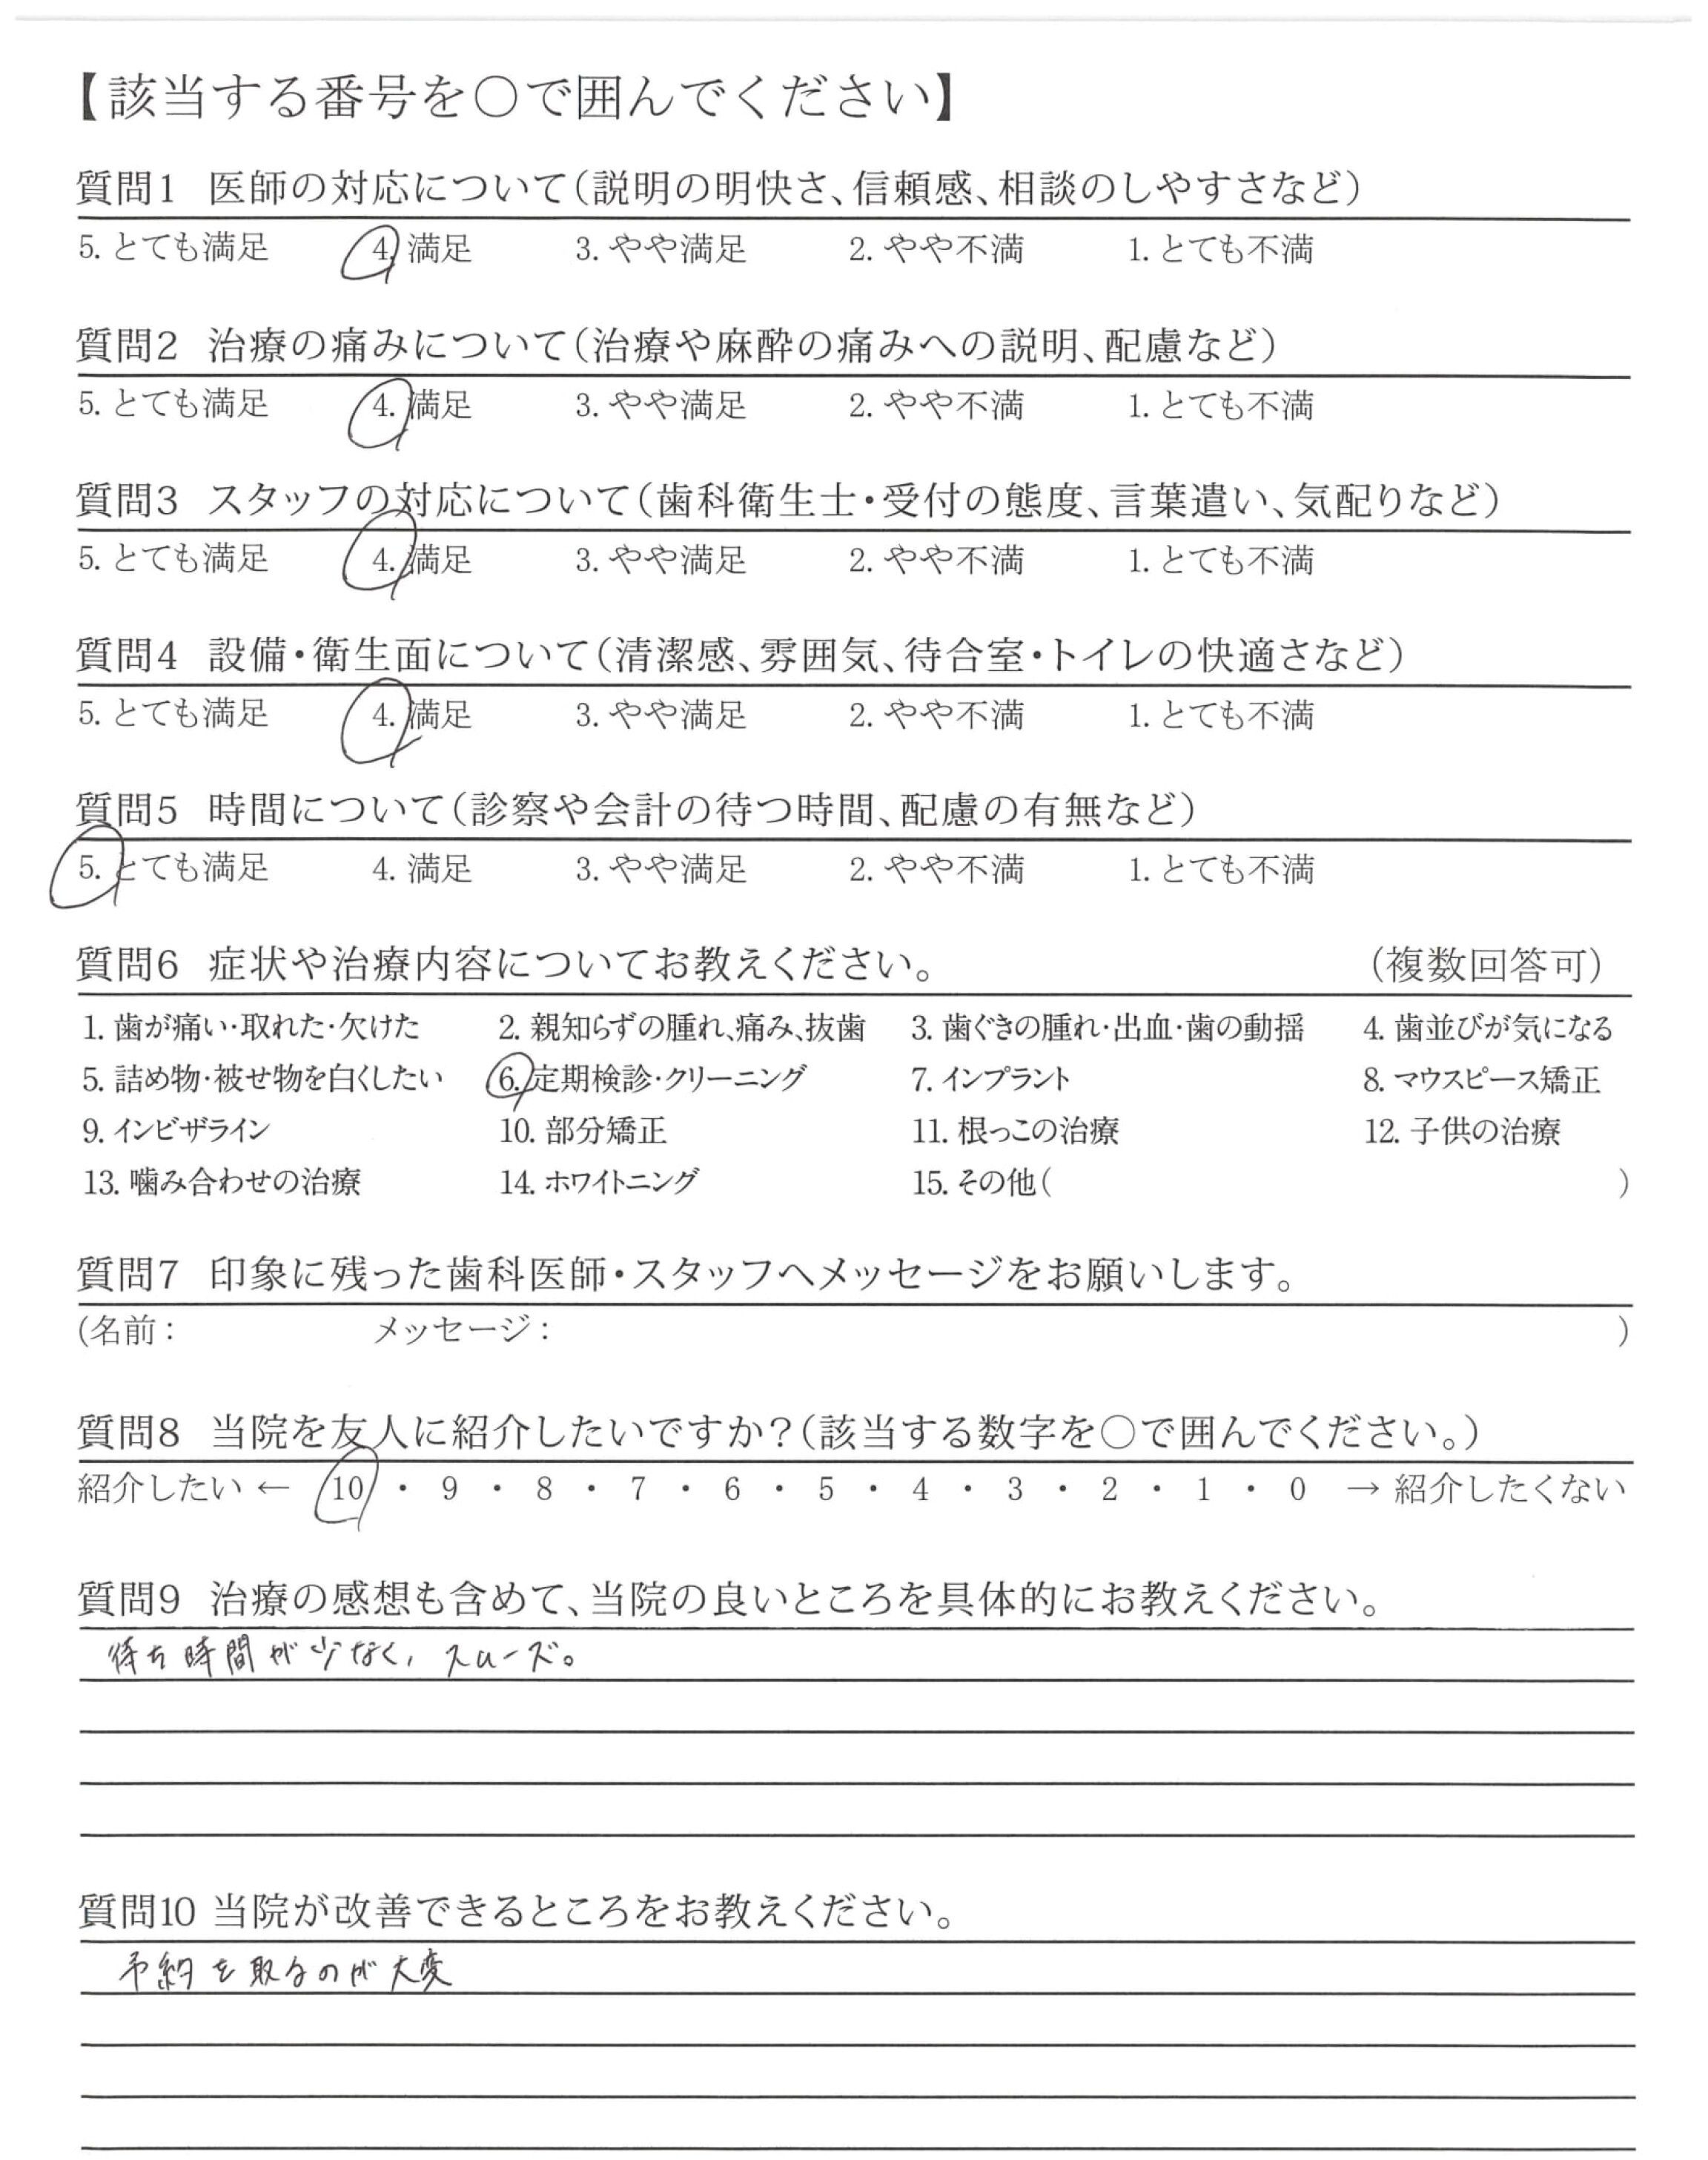 【該当する番号を○で囲んでください】
質問1 医師の対応について(説明の明快さ、信頼感、相談のしやすさなど)
5. とても満足 4. 満足 3. やや満足 2. やや不満 1. とても不満
質問2 治療の痛みについて(治療や麻酔の痛みへの説明、配慮など)
5. とても満足 4. 満足 3. やや満足 2. やや不満 1. とても不満
質問3 スタッフの対応について(歯科衛生士・受付の態度、言葉遣い、気配りなど)
5. とても満足 4. 満足 3. やや満足 2. やや不満 1. とても不満
質問4 設備・衛生面について(清潔感、雰囲気、待合室・トイレの快適さなど)
5. とても満足 4. 満足 3. やや満足 2. やや不満 1. とても不満
質問5 時間について(診察や会計の待つ時間、配慮の有無など)
5. とても満足 4. 満足 3. やや満足 2. やや不満 1. とても不満
質問6 症状や治療内容についてお教えください。 (複数回答可)
1. 歯が痛い・取れた・欠けた 2. 親知らずの腫れ、痛み、抜歯 3. 歯ぐきの腫れ・出血・歯の動揺 4. 歯並びが気になる
5. 詰め物・被せ物を白くしたい 6. 定期検診・クリーニング 7. インプラント 8. マウスピース矯正
9. インビザライン 10. 部分矯正 11. 根っこの治療 12. 子供の治療
13. 噛み合わせの治療 14. ホワイトニング 15. その他( )
質問7 印象に残った歯科医師・スタッフへメッセージをお願いします。
(名前: メッセージ: )
質問8 当院を友人に紹介したいですか?(該当する数字を○で囲んでください。)
紹介したい ← 10 ・ 9 ・ 8 ・ 7 ・ 6 ・ 5 ・ 4 ・ 3 ・ 2 ・ 1 ・ 0 → 紹介したくない
質問9 治療の感想も含めて、当院の良いところを具体的にお教えください。
待ち時間が少なく、スムーズ。
質問10 当院が改善できるところをお教えください。
予約を取るのが大変